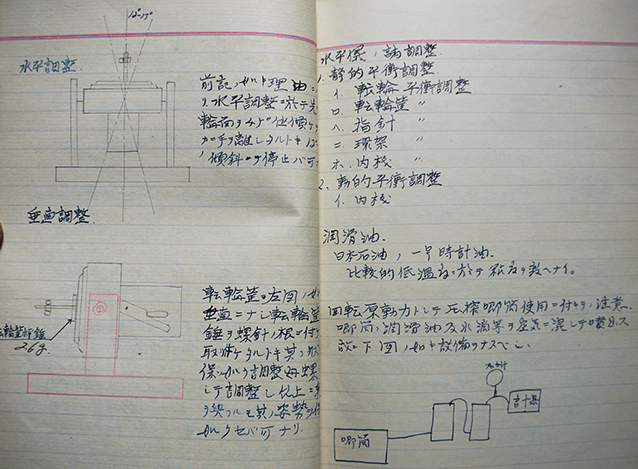 12°~13°
水平調整.
前記ノ如キ理由ニ
リ水平調整ニ於テ先
輪面ヲ45°位傾ケ
ガ手ヲ離シタルトキ12°
傾斜ニテ停止バ可
垂直調整.
転輪筐ヲ左図ノ如
垂直ニナシ転輪筐
錘ヲ螺針ノ根ニ付ケ
26g.
取付ケタルトキ
調整母螺
シテ調整シ以上ニ
其ノ姿勢
セバ可ナリ.
水平儀ノ諸調整
1. 静的平衡調整.
イ. 転輪平衡調整
ロ. 転輪筐 〃
ハ. 指針 〃
ニ. 環架 〃
ホ. 内枠 〃
2. 動的平衡調整
イ. 内枠
潤滑油.
日本石油ノ一号時計油.
比較的低温度ノ方ニテ粘度ヲ変ヘナイ.
回転原動力トシテ圧搾喞筒使用ニ付キテノ注意.
喞筒ノ潤滑油及水滴等ヲ空気ニ混シテ噴出ス
故ニ下図ノ如キ設備ヲナスベシ
喞筒